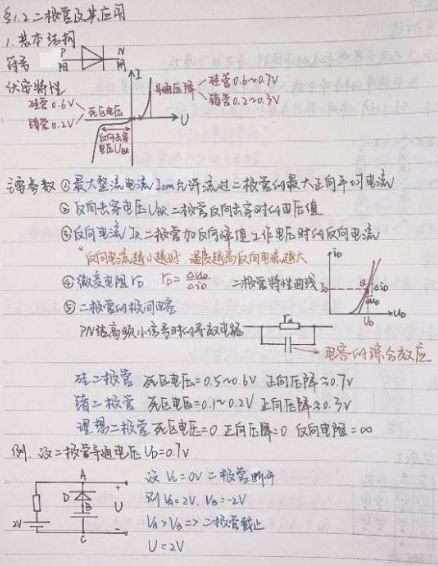 §1.2 二极管及其应用
1.基本结构
符号 P N
伏安特性 I U
硅管0.6V 锗管0.2V 死区电压
导通压降 硅管0.6~0.7V 锗管0.2~0.3V
反向击穿电压UBR
参数 ①最大整流电流IOM 允许流过二极管的最大正向平均电流
②反向击穿电压UBR 二极管反向击穿时的电压值
③反向电流IR 二极管加反向峰值工作电压时的反向电流
*反向电流越小越好 温度越高反向电流越大
④微变电阻rD rD=ΔuD/ΔiD 二极管特性曲线
iD ID Q ΔiD ΔuD UD uD
⑤二极管的极间电容
PN结高频小信号时的等效电路 rd
电容的综合效应
硅二极管 死区电压=0.5~0.6V 正向压降≈0.7V
锗二极管 死区电压=0.1~0.2V 正向压降≈0.3V
理想二极管 死区电压=0 正向压降=0 反向电阻=∞
例. 设二极管导通电压UD=0.7V
设VC=0V 二极管断开
则VA=2V, VB=-2V
VA>VB=>二极管截止
U=2V
A D B C U 2V